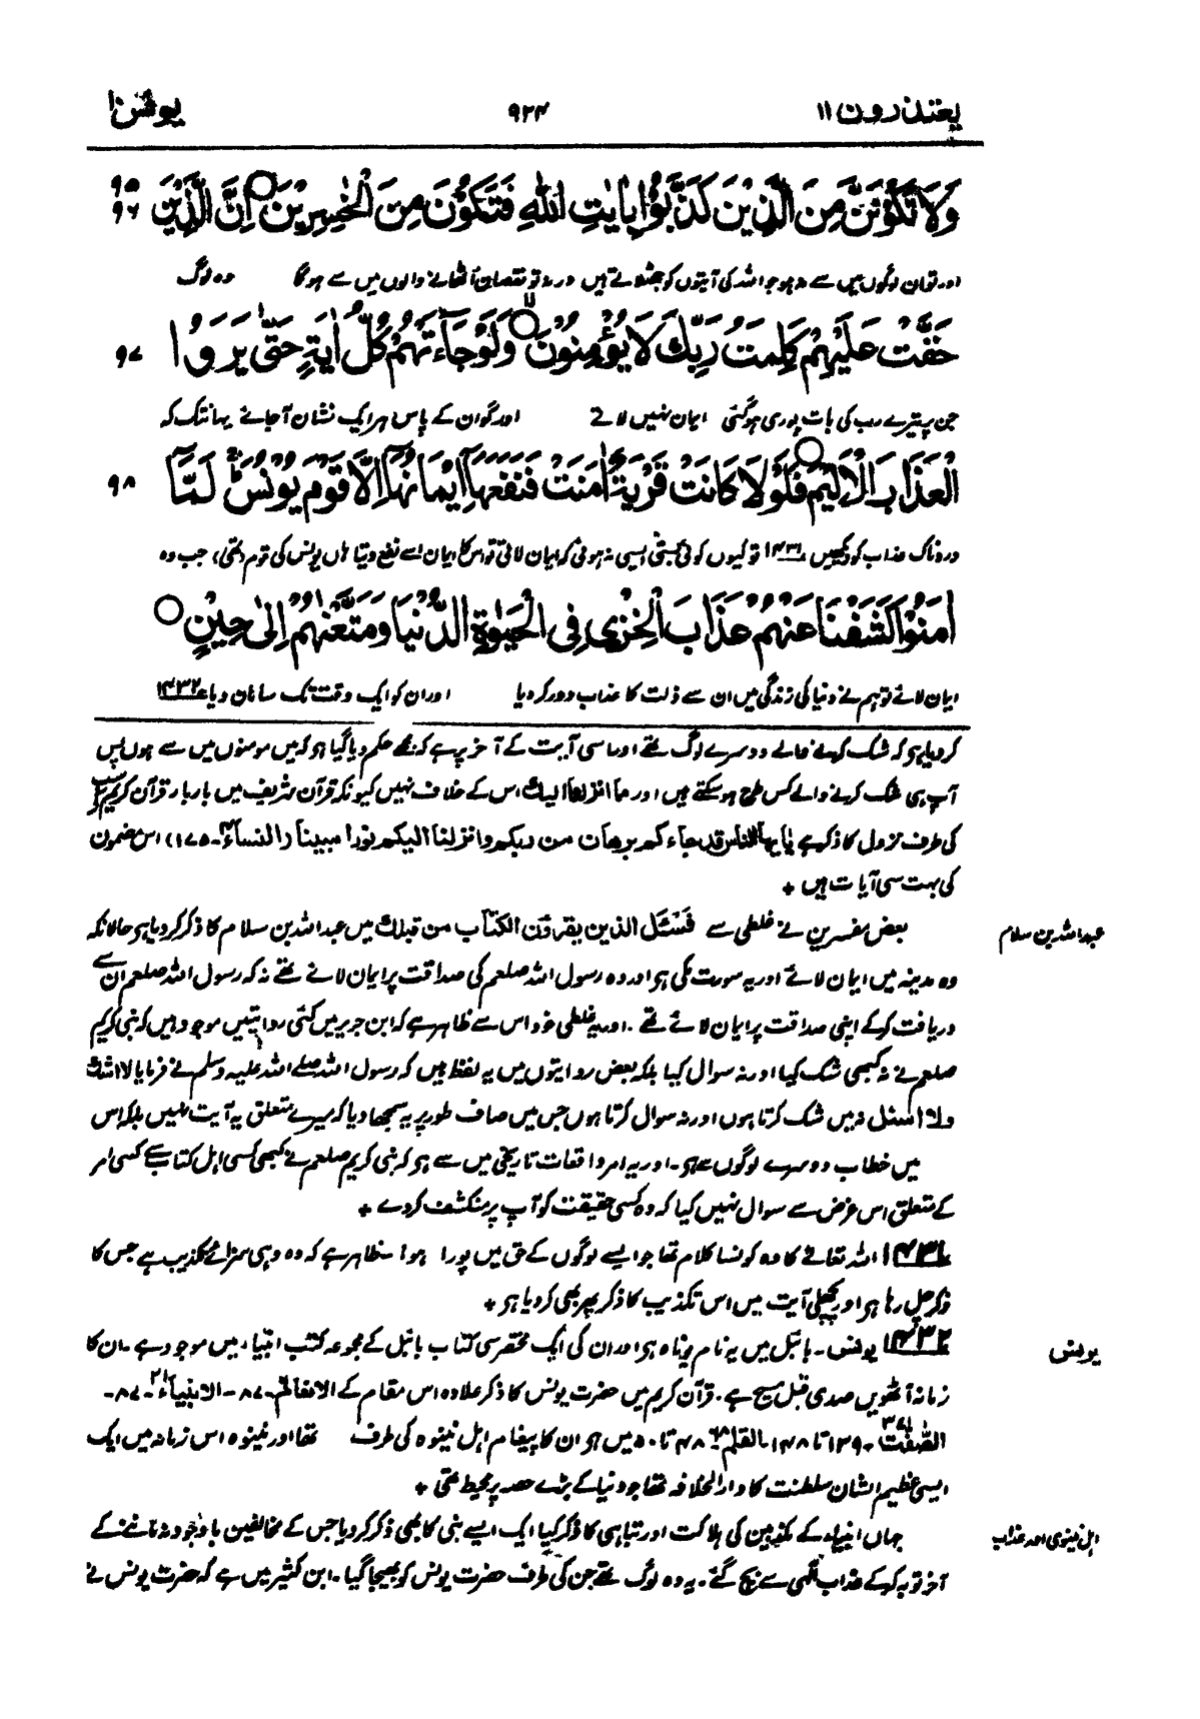 یعتذرون ۱۱ ۹۲۴ یونس ۱۰
وَلَا تَكُوْنَنَّ مِنَ الَّذِيْنَ كَذَّبُوْا بِاٰيٰتِ اللّٰهِ فَتَكُوْنَ مِنَ الْخٰسِرِيْنَ ○ اِنَّ الَّذِيْنَ ۹۵ ۹۶
اور تو ان لوگوں میں سے نہ ہو جو اللہ کی آیتوں کو جھٹلاتے ہیں ورنہ تو نقصان اُٹھانے والوں میں سے ہوگا وہ لوگ
حَقَّتْ عَلَيْهِمْ كَلِمَتُ رَبِّكَ لَا يُؤْمِنُوْنَ ○ وَلَوْ جَآءَتْهُمْ كُلُّ اٰيَةٍ حَتّٰى يَرَوُا ۹۷
جن پر تیرے رب کی بات پوری ہوگئی ایمان نہیں لاتے اور گو ان کے پاس ہر ایک نشان آجائے یہانتک کہ
الْعَذَابَ الْاَلِيْمَ ○ فَلَوْلَا كَانَتْ قَرْيَةٌ اٰمَنَتْ فَنَفَعَهَآ اِيْمَانُهَآ اِلَّا قَوْمَ يُوْنُسَ ؕ لَمَّآ ۹۸
دردناک عذاب کو دیکھیں ۱۴۳۱ تو کیوں کوئی بستی ایسی نہ ہوئی کہ ایمان لاتی تو اس کا ایمان اسے نفع دیتا ہاں یونس کی قوم (تھی) جب وہ
اٰمَنُوْا كَشَفْنَا عَنْهُمْ عَذَابَ الْخِزْيِ فِى الْحَيٰوةِ الدُّنْيَا وَمَتَّعْنٰهُمْ اِلٰى حِيْنٍ ○
ایمان لائے تو ہم نے دنیا کی زندگی میں ان سے ذلت کا عذاب دور کردیا اور ان کو ایک وقت تک سامان دیا ۱۴۳۲
کردیا ہو کہ شک کرنے والے دوسرے لوگ تھے اور اسی آیت کے آخر پر ہے کہ مجھے حکم دیا گیا ہو کہ میں مومنوں میں سے ہوں پس
آپ ہی شک کرنے والے کس طرح ہوسکتے ہیں اور ما انزلنا الیک اس کے خلاف نہیں کیونکہ قرآن شریف میں بار بار قرآن کریم سب
کی طرف نزول کا ذکر ہے یا یہا الناس قد جاء کم برھان من ربکم وانزلنا الیکم نورا مبینا (النساء ۴ ۔ ۱۷۵) اس مضمون
کی بہت سی آیات ہیں ٭
بعض مفسرین نے غلطی سے فسئل الذین یقرؤن الکتٰب من قبلک میں عبداللہ بن سلام کا ذکر کردیا ہو حالانکہ
عبداللہ بن سلام
وہ مدینہ میں ایمان لائے اور یہ سورت مکی ہو اور وہ رسول اللہ صلعم کی صداقت پر ایمان لائے تھے نہ کہ رسول اللہ صلعم ان سے
دریافت کرکے اپنی صداقت پر ایمان لائے تھے ۔ اور یہ غلطی خود اس سے ظاہر ہے کہ ابن جریر میں کئی روایتیں موجود ہیں کہ نبی کریم
صلعم نے نہ کبھی شک کیا اور نہ سوال کیا بلکہ بعض روایتوں میں یہ لفظ ہیں کہ رسول اللہ صلے اللہ علیہ وسلم نے فرمایا لا اشک
ولا اسئل نہ میں شک کرتا ہوں اور نہ سوال کرتا ہوں جس میں صاف طور پر یہ سمجھا دیا کہ میرے متعلق یہ آیت نہیں بلکہ اس
میں خطاب دوسرے لوگوں سے ہو ۔ اور یہ امر واقعات تاریخی میں سے ہو کہ نبی کریم صلعم نے کبھی کسی اہل کتاب سے کسی امر
کے متعلق اس غرض سے سوال نہیں کیا کہ وہ کسی حقیقت کو آپ پر منکشف کردے ٭
۱۴۳۱ اللہ تعالےٰ کا وہ کونسا کلام تھا جو ایسے لوگوں کے حق میں پورا ہوا ۔ ظاہر ہے کہ وہ وہی سزائے تکذیب ہے جس کا
ذکر چل رہا ہو اور پچھلی آیت میں اس تکذیب کا ذکر پھر بھی کردیا ہو ٭
۱۴۳۲ یونس ۔ بائبل میں یہ نام یوناہ ہو اور ان کی ایک مختصر سی کتاب بائبل کے مجموعہ کتب انبیاء میں موجود ہے ۔ ان کا
یونس
زمانہ آٹھویں صدی قبل مسیح ہے ۔ قرآن کریم میں حضرت یونس کا ذکر علاوہ اس مقام کے الانعام ۔ ۸۷ ۔ الانبیآء ۲۱ ۔ ۸۷ ۔
الصّٰفّٰت ۳۷ ۔ ۱۳۹ تا ۱۴۸ ۔ القلم ۶۸ ۔ ۴۸ تا ۵۰ میں ہو ان کا پیغام اہل نینوہ کی طرف تھا اور نینوہ اس زمانہ میں ایک
ایسی عظیم الشان سلطنت کا دارالخلافہ تھا جو دنیا کے بڑے حصہ پر محیط تھی ٭
جہاں انبیاء کے مکذبین کی ہلاکت اور تباہی کا ذکر کیا ایک ایسے نبی کا بھی ذکر کردیا جس کے مخالفین باوجود نہ ماننے کے
اہل نینوی اور عذاب
آخر توبہ کرکے عذاب الٰہی سے بچ گئے ۔ یہ وہ لوگ تھے جن کی طرف حضرت یونس کو بھیجا گیا ۔ ابن کثیر میں ہے کہ حضرت یونس نے